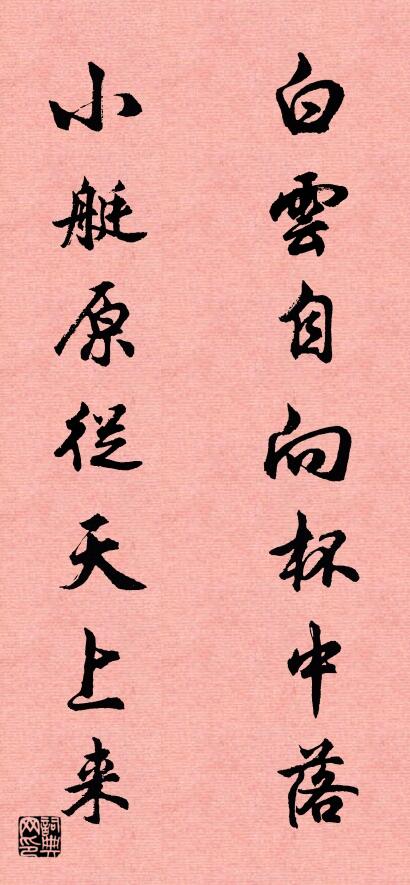 白雲自向杯中落
小艇原從天上来
詞典网印